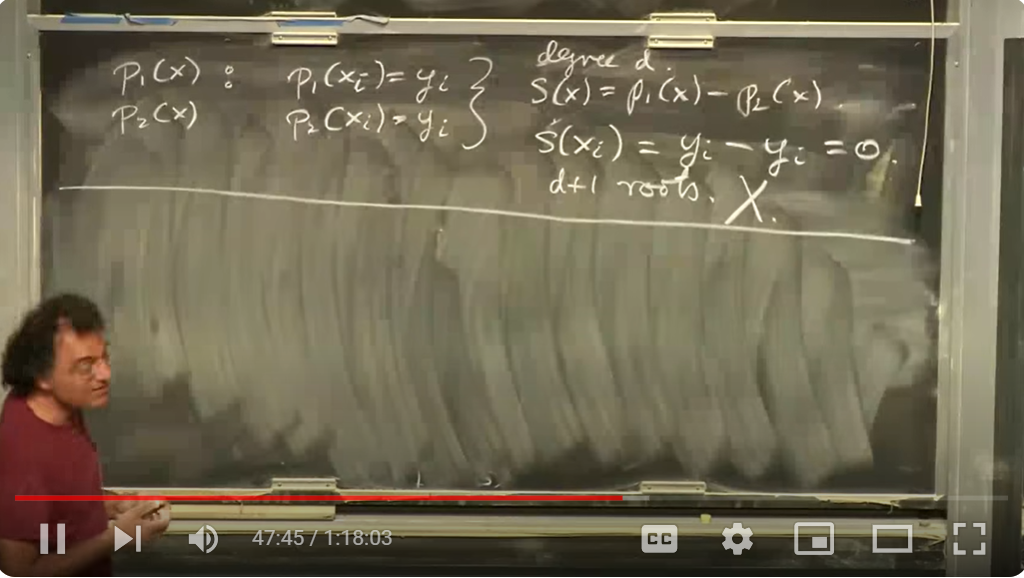 p₁(x) : p₁(xᵢ) = yᵢ
p₂(x) p₂(xᵢ) = yᵢ
degree d.
S(x) = p₁(x) − p₂(x).
S(xᵢ) = yᵢ − yᵢ = 0.
d+1 roots. X.
47:45 / 1:18:03
CC